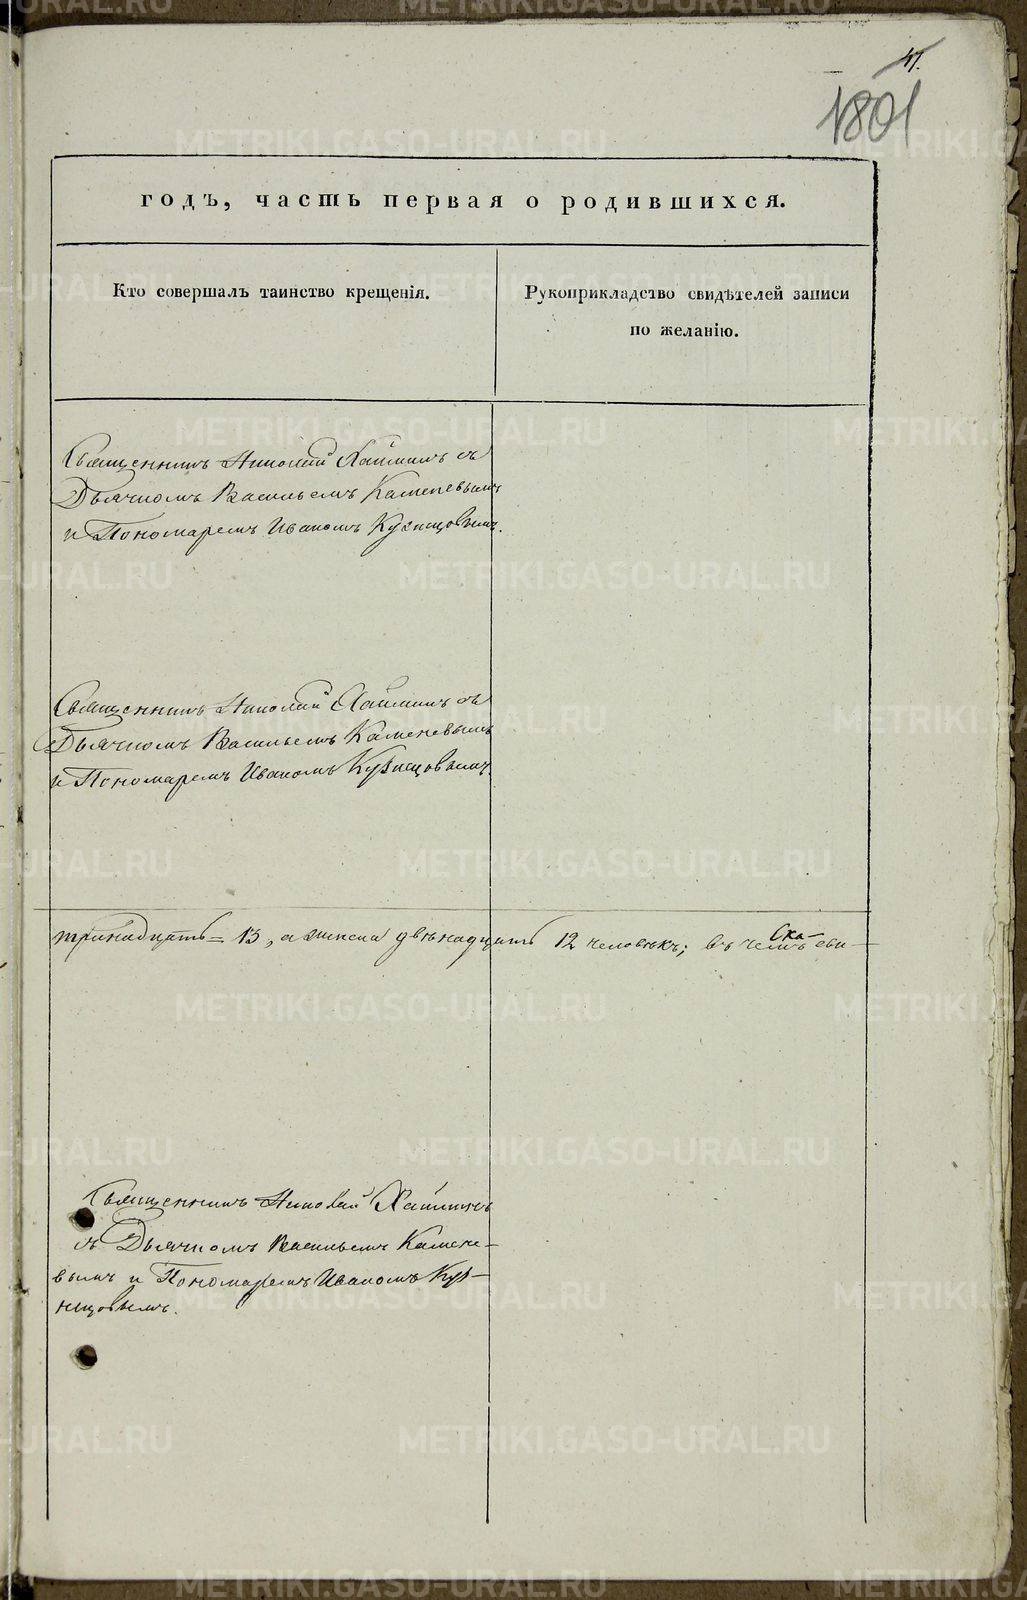 41.
1801
годъ, часть первая о родившихся.
Кто совершалъ таинство крещенія.
Рукоприкладство свидѣтелей записи
по желанію.
Священникъ Николай Хаймин съ
Дьячкомъ Васильемъ Каменевымъ
и Пономаремъ Иваномъ Кузнецовымъ.
Священникъ Николай Хаймин съ
Дьячкомъ Васильемъ Каменевымъ
и Пономаремъ Иваномъ Кузнецовымъ.
тринадцать = 13, а женска двѣнадцать 12 человѣкъ; въ чемъ сви-
Священникъ Николай
съ Дьячкомъ Васильемъ Камене-
вымъ и Пономаремъ Иваномъ Куз-
нецовымъ.
METRIKI.GASO-URAL.RU